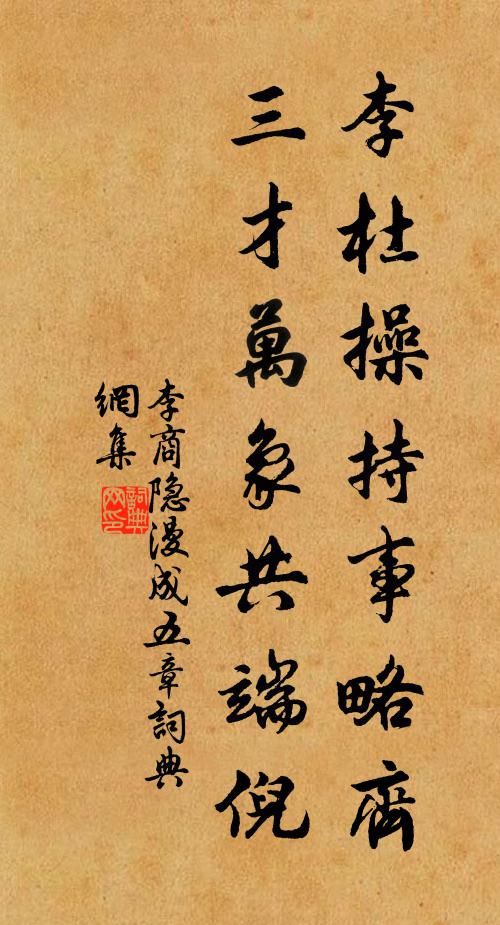 李杜操持事略齊
三才萬象共端倪
李商隐漫成五章詞典
網集
詞典
网印